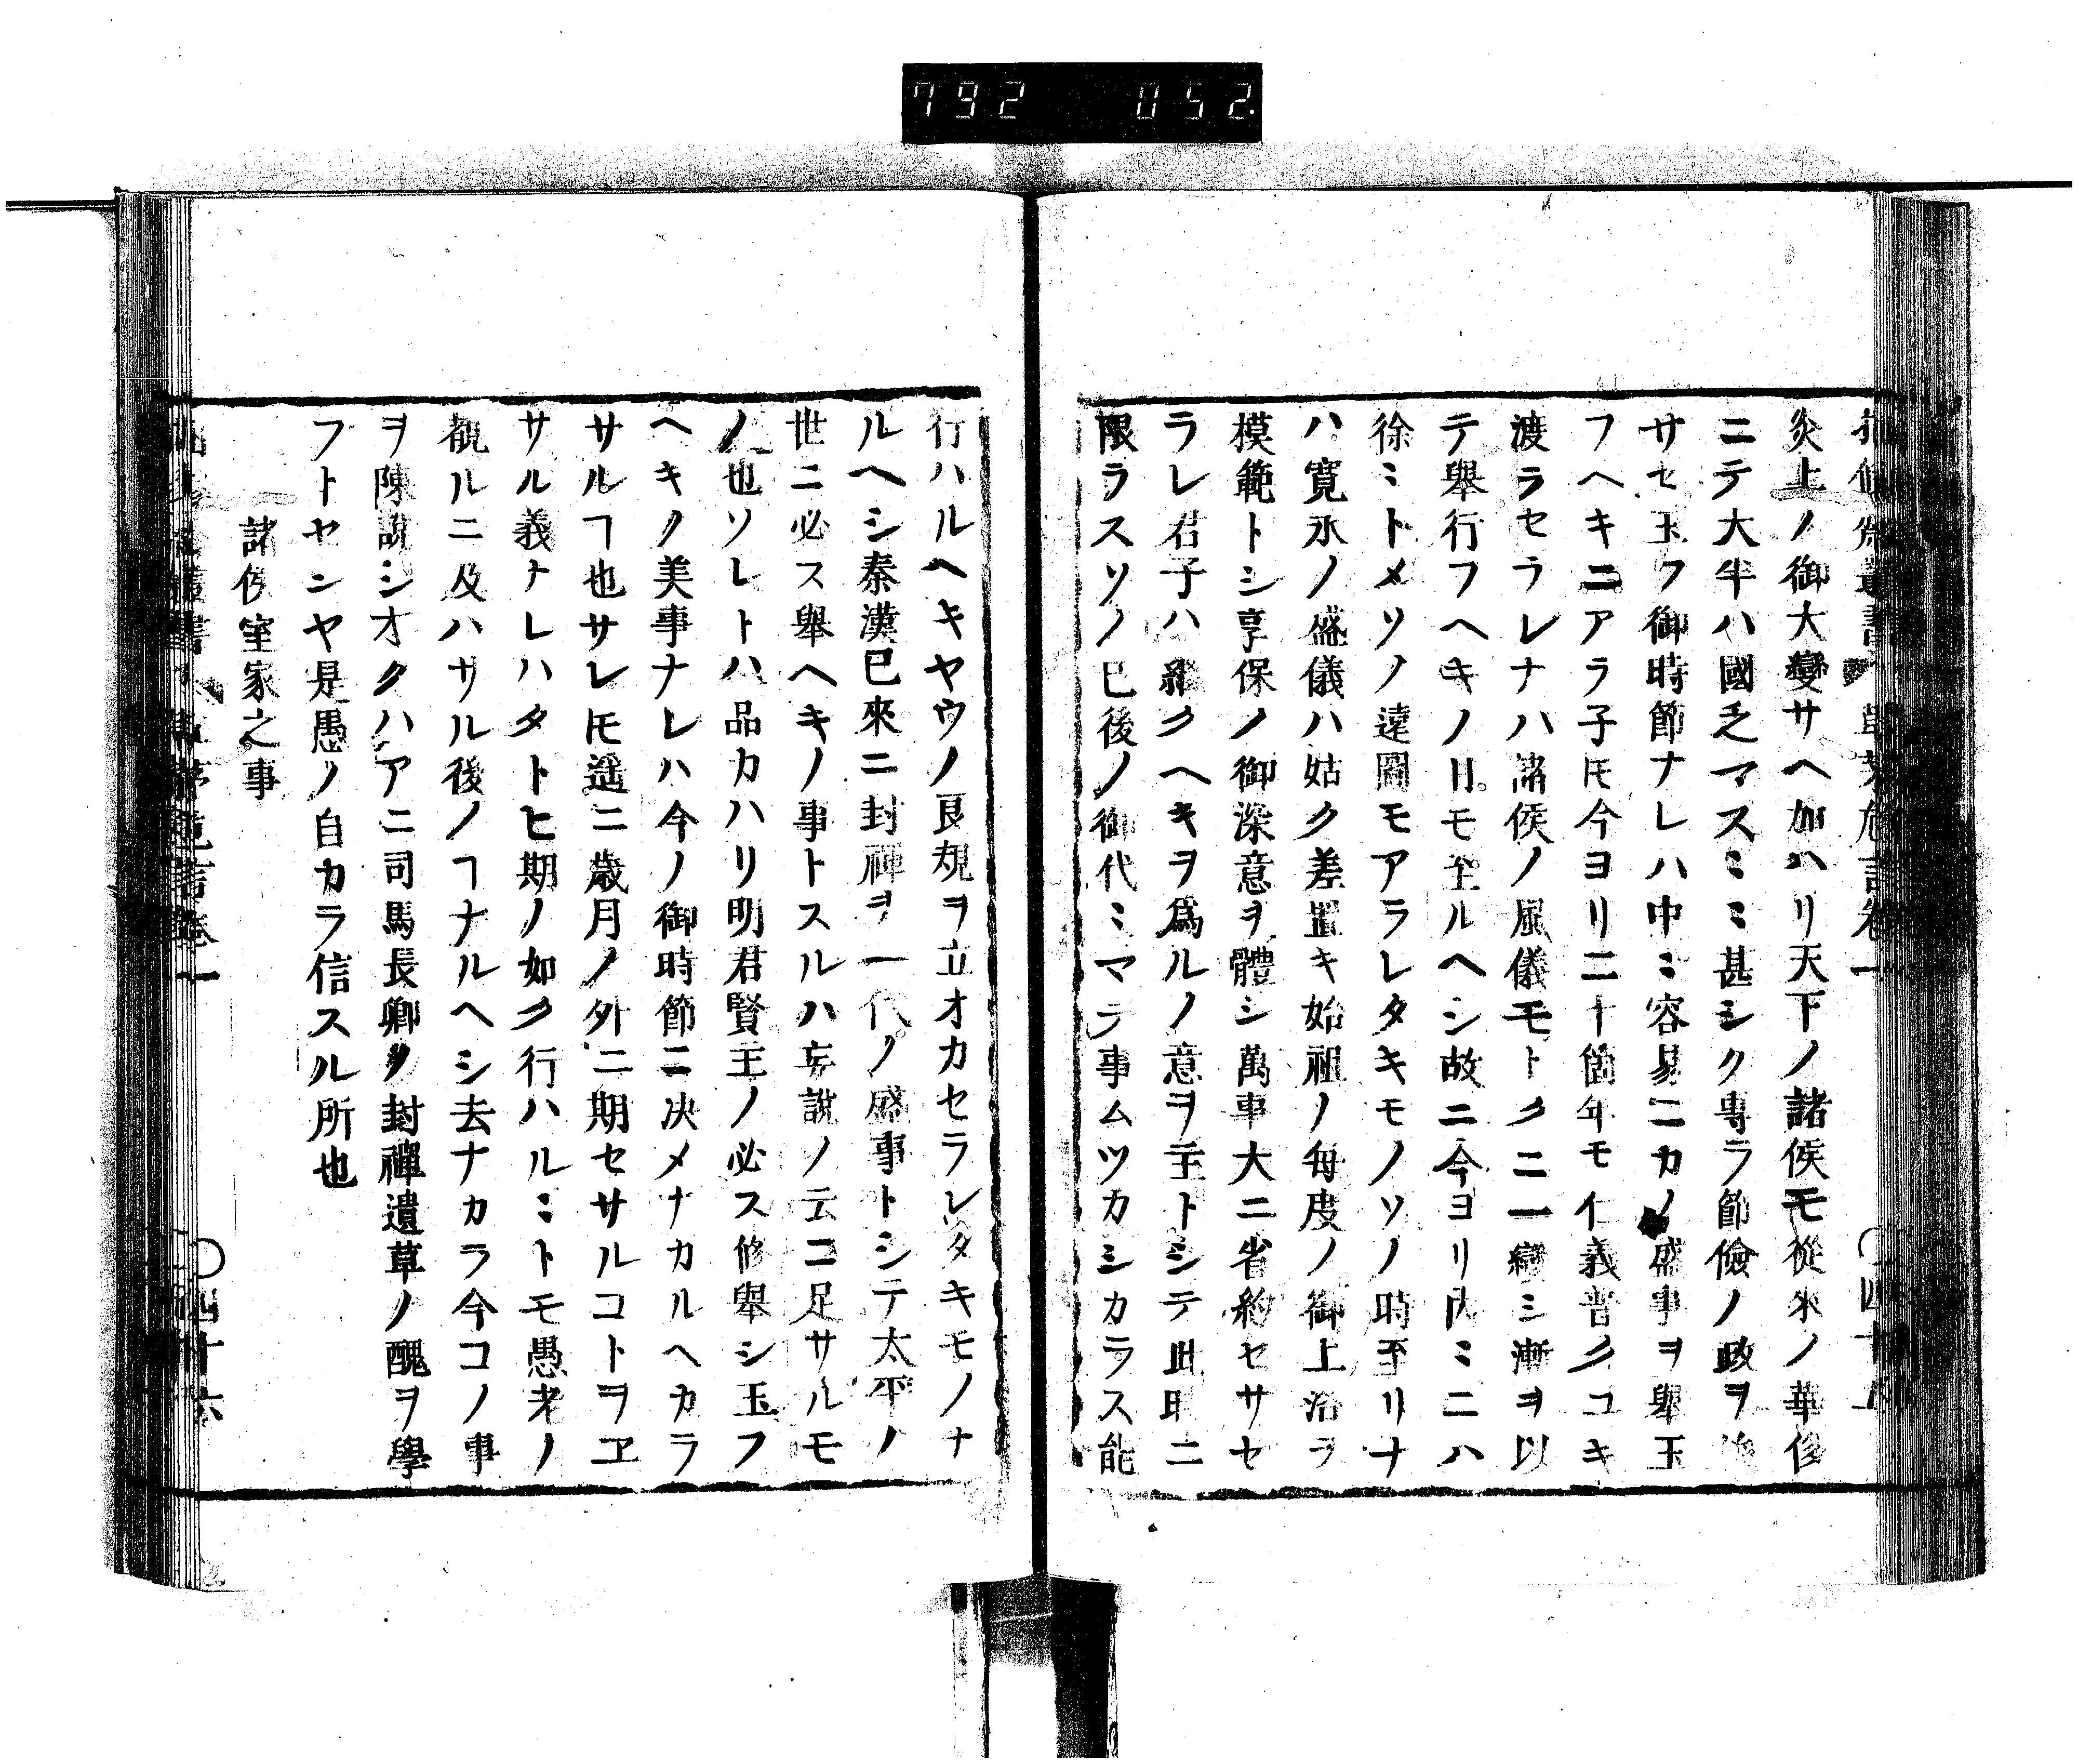 792 052
炎上ノ御大變サヘ加ハリ天下ノ諸侯モ從來ノ華侈
ニテ大半ハ國乏マスミミ甚シク專ラ節儉ノ政ヲ
サセ玉フ御時節ナレハ中ミ容易ニカノ盛事ヲ舉玉
フヘキニアラ子𪜈今ヨリ二十箇年モ仁義普クユキ
渡ラセラレナハ諸侯ノ風儀モトクニ一變シ漸ヲ以
テ舉行フヘキノ日モ至ルヘシ故ニ今ヨリ内ミニハ
徐ミトメソノ遠圖モアラレタキモノソノ時至リナ
ハ寛永ノ盛儀ハ姑ク差置キ始祖ノ毎度ノ御上洛ヲ
模範トシ享保ノ御深意ヲ體シ萬事大ニ省約セサセ
ラレ君子ハ繼クヘキヲ爲ルノ意ヲ主トシテ此時ニ
限ラスソノ已後ノ御代ミマテ事ムツカシカラス能
行ハルヘキヤウノ良規ヲ立オカセラレタキモノナ
ルヘシ秦漢已來ニ封禪ヲ一代ノ盛事トシテ太平ノ
世ニ必ス舉ヘキノ事トスルハ妄說ノ云ニ足サルモ
ノ也ソレトハ品カハリ明君賢主ノ必ス修舉シ玉フ
ヘキノ美事ナレハ今ノ御時節ニ决メナカルヘカラ
サルヿ也サレ𪜈遥ニ歳月ノ外ニ期セサルコトヲヱ
サル義ナレハタトヒ期ノ如ク行ハルミトモ愚老ノ
觀ルニ及ハサル後ノヿナルヘシ去ナカラ今コノ事
ヲ陳說シオクハアニ司馬長卿ノ封禪遺草ノ醜ヲ學
フトヤンヤ是愚ノ自カラ信スル所也
諸侯室家之事
卷一
○四十六